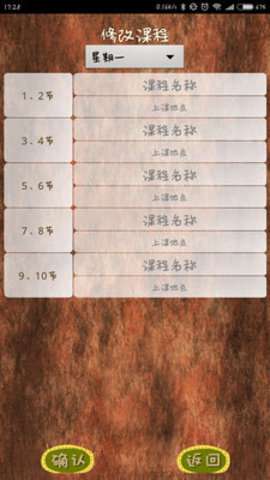 17:28
0.16K/s
47%
修改课程
星期一
1、2节
课程名称
上课地点
3、4节
课程名称
上课地点
5、6节
课程名称
上课地点
7、8节
课程名称
上课地点
9、10节
课程名称
上课地点
确认
返回